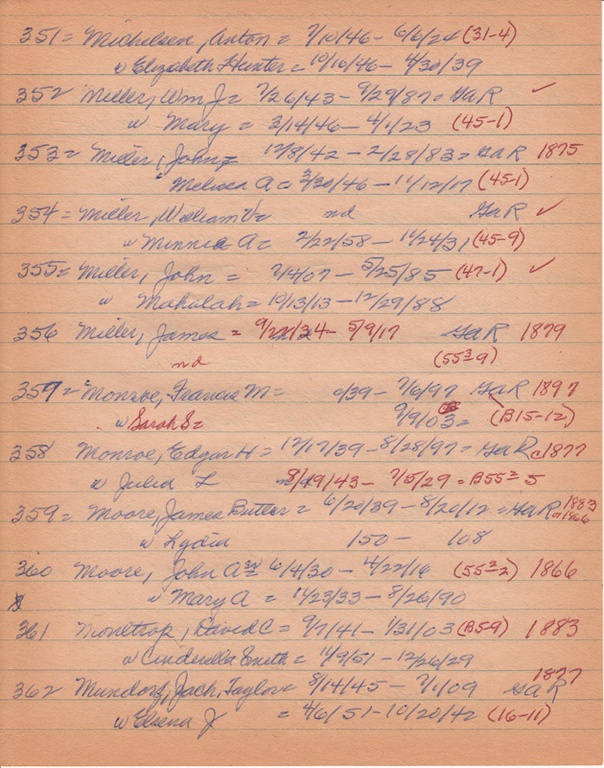 351 = Michelsen, Anton = 7/10/46 - 6/6/24 (31-4)
w Elizabeth Hunter = 10/10/46 - 4/30/39
352 Miller, Wm J = 7/26/43 - 9/29/87 = GaR ✓
w Mary = 3/14/46 - 4/1/23 (45-1)
353 = Miller, John = 12/8/42 - 2/28/83 = GaR 1875
" Melissa A = 3/20/46 - 11/12/17 (45-1)
354 = Miller, William V = nd GaR ✓
w Minnie A = 2/22/58 - 11/24/31 (45-9)
355 = Miller, John = 7/4/07 - 5/25/85 (47-1) ✓
w Mahulah = 10/13/13 - 12/29/88
356 Miller, James = 9/22/34 - 5/9/17 GaR 1879
nd (55 3 9)
357 = Monroe, Francis M = /39 - 7/6/97 GaR 1897
w Sarah S = 9/9/03 = (B15-12)
358 Monroe, Edgar H = 12/17/39 - 8/28/97 = GaR 1877
w Julia L 8/19/43 - 7/5/29 = B55 3 5
359 = Moore, James Butler = 6/20/39 - 8/20/12 = GaR 1883 or 1866
w Lydia 150 - 108
360 Moore, John A = 6/4/30 - 4/22/16 (55 3 2) 1866
w Mary A = 11/23/33 - 8/26/90
361 David C = 9/7/41 - 1/31/03 (B59) 1883
w Cinderella Smith = 11/9/51 - 12/26/29
362 Mundorf, Jack, Taylor = 8/14/45 - 7/1/09 GaR 1877
w J = 4/6/51 - 10/20/42 (16-11)